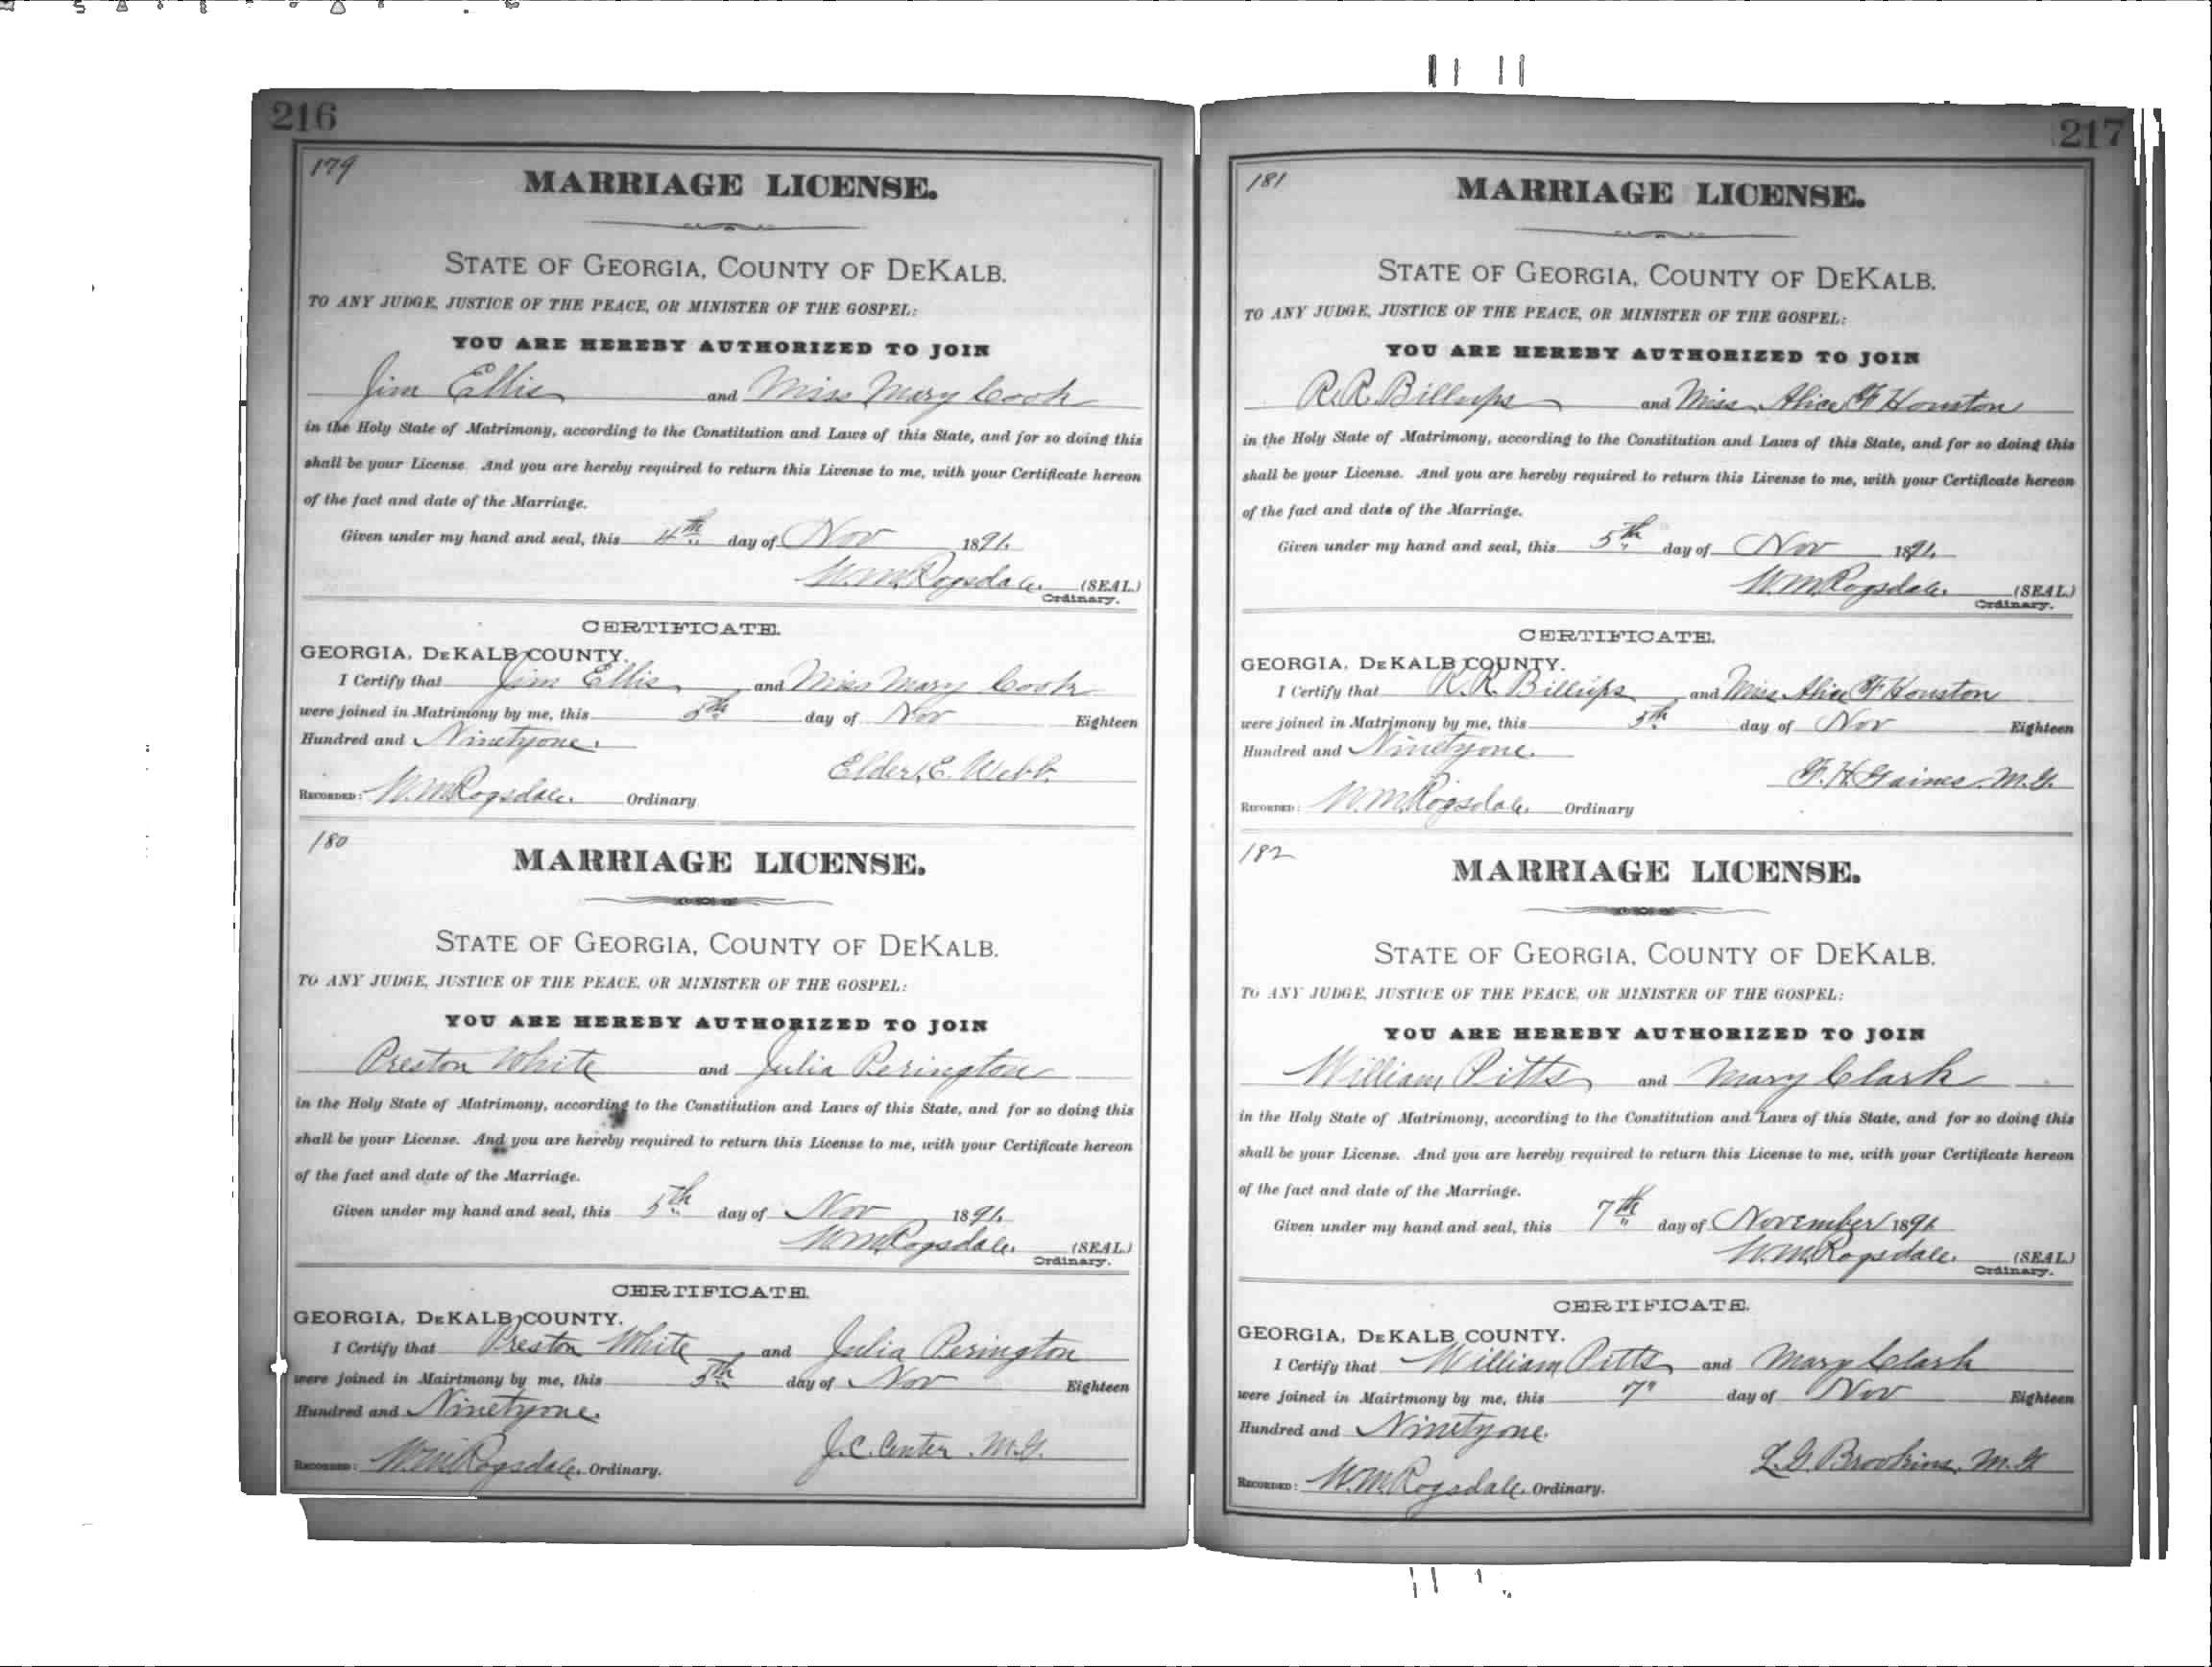 216
179
MARRIAGE LICENSE.
STATE OF GEORGIA, COUNTY OF DEKALB.
TO ANY JUDGE, JUSTICE OF THE PEACE, OR MINISTER OF THE GOSPEL:
YOU ARE HEREBY AUTHORIZED TO JOIN
Jim Ellis and Miss Mary Cook
in the Holy State of Matrimony, according to the Constitution and Laws of this State, and for so doing this
shall be your License. And you are hereby required to return this License to me, with your Certificate hereon
of the fact and date of the Marriage.
Given under my hand and seal, this 4th day of Nov 1891.
W.M. Ragsdale. (SEAL.)
Ordinary.
CERTIFICATE.
GEORGIA, DEKALB COUNTY.
I Certify that Jim Ellis and Miss Mary Cook
were joined in Matrimony by me, this 5th day of Nov Eighteen
Hundred and Ninetyone.
Elder, E. Webb.
RECORDED: W.M. Ragsdale. Ordinary
180
MARRIAGE LICENSE.
STATE OF GEORGIA, COUNTY OF DEKALB.
TO ANY JUDGE, JUSTICE OF THE PEACE, OR MINISTER OF THE GOSPEL:
YOU ARE HEREBY AUTHORIZED TO JOIN
Preston White and Julia Perington
in the Holy State of Matrimony, according to the Constitution and Laws of this State, and for so doing this
shall be your License. And you are hereby required to return this License to me, with your Certificate hereon
of the fact and date of the Marriage.
Given under my hand and seal, this 5th day of Nov 1891.
W.M. Ragsdale. (SEAL.)
Ordinary.
CERTIFICATE.
GEORGIA, DEKALB COUNTY.
I Certify that Preston White and Julia Perington
were joined in Mairtmony by me, this 5th day of Nov Eighteen
Hundred and Ninetyone.
J.C. Center. M.G.
RECORDED: W.M. Ragsdale. Ordinary.
217
181
MARRIAGE LICENSE.
STATE OF GEORGIA, COUNTY OF DEKALB.
TO ANY JUDGE, JUSTICE OF THE PEACE, OR MINISTER OF THE GOSPEL:
YOU ARE HEREBY AUTHORIZED TO JOIN
R.R. Billups and Miss Alice F Houston
in the Holy State of Matrimony, according to the Constitution and Laws of this State, and for so doing this
shall be your License. And you are hereby required to return this License to me, with your Certificate hereon
of the fact and date of the Marriage.
Given under my hand and seal, this 5th day of Nov 1891.
W.M. Ragsdale. (SEAL.)
Ordinary.
CERTIFICATE.
GEORGIA, DEKALB COUNTY.
I Certify that R.R. Billups and Miss Alice F Houston
were joined in Matrimony by me, this 5th day of Nov Eighteen
Hundred and Ninetyone.
F.H. Gaines. M.G.
RECORDED: W.M. Ragsdale. Ordinary
182
MARRIAGE LICENSE.
STATE OF GEORGIA, COUNTY OF DEKALB.
TO ANY JUDGE, JUSTICE OF THE PEACE, OR MINISTER OF THE GOSPEL:
YOU ARE HEREBY AUTHORIZED TO JOIN
William Pitts and Mary Clark
in the Holy State of Matrimony, according to the Constitution and Laws of this State, and for so doing this
shall be your License. And you are hereby required to return this License to me, with your Certificate hereon
of the fact and date of the Marriage.
Given under my hand and seal, this 7th day of November 1891.
W.M. Ragsdale. (SEAL.)
Ordinary.
CERTIFICATE.
GEORGIA, DEKALB COUNTY.
I Certify that William Pitts and Mary Clark
were joined in Mairtmony by me, this 7" day of Nov Eighteen
Hundred and Ninetyone.
L.G. Brookins. M.G
RECORDED: W.M. Ragsdale. Ordinary.